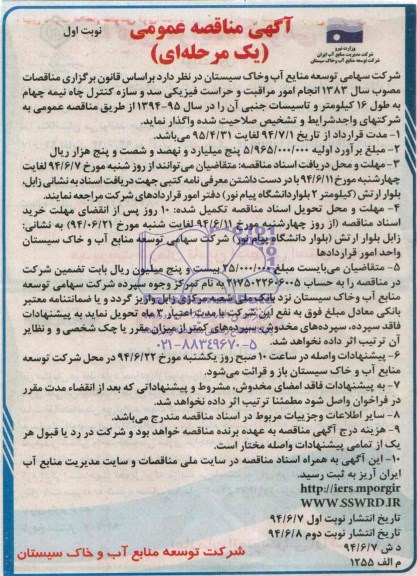 آگهی مناقصه عمومی
(یک مرحله‌ای)
نوبت اول
وزارت نیرو
شرکت مدیریت منابع آب ایران
شرکت توسعه منابع آب و خاک سیستان
شرکت سهامی توسعه منابع آب وخاک سیستان در نظر دارد براساس قانون برگزاری مناقصات
مصوب سال ۱۳۸۳ انجام امور مراقبت و حراست فیزیکی سد و سازه کنترل چاه نیمه چهارم
به طول ۱۶ کیلومتر و تاسیسات جنبی آن را در سال ۹۵-۱۳۹۴ از طریق مناقصه عمومی به
شرکتهای واجدشرایط و تشخیص صلاحیت شده واگذار نماید.
۱- مدت قرارداد از تاریخ ۹۴/۷/۱ لغایت ۹۵/۴/۳۱ می‌باشد.
۲- مبلغ برآورد اولیه ۵/۹۶۵/۰۰۰/۰۰۰ پنج میلیارد و نهصد و شصت و پنج هزار ریال
۳-مهلت و محل دریافت اسناد مناقصه: متقاضیان می‌توانند از روز شنبه مورخ ۹۴/۶/۷ لغایت
چهارشنبه مورخ ۹۴/۶/۱۱ با در دست داشتن معرفی نامه کتبی جهت دریافت اسناد به نشانی زابل،
بلوار ارتش (کیلومتر ۲ بلواردانشگاه پیام نور) دفتر امور قراردادهای شرکت مراجعه نمایند.
۴- مهلت و محل تحویل اسناد مناقصه تکمیل شده: ۱۰ روز پس از انقضای مهلت خرید
اسناد مناقصه (از روز چهارشنبه مورخ ۹۴/۶/۱۱ لغایت شنبه مورخ ۹۴/۰۶/۲۱) به نشانی:
زابل بلوار ارتش (بلوار دانشگاه پیام نور) شرکت سهامی توسعه منابع آب و خاک سیستان
واحد امور قراردادها
۵- متقاضیان می‌بایست مبلغ ۲۵/۰۰۰/۰۰۰ بیست و پنج میلیون ریال بابت تضمین شرکت
در مناقصه را به حساب ۲۱۷۵۰۲۲۶۰۶۰۰۵ به نام تمرکز وجوه سپرده شرکت سهامی توسعه
منابع آب و خاک سیستان نزد بانک ملی شعبه مرکزی زابل واریز گردد و یا ضمانتنامه معتبر
بانکی معادل مبلغ فوق به نفع این شرکت با مدت اعتبار ۳ ماه تحویل نماید به پیشنهادات
فاقد سپرده، سپرده‌های مخدوش، سپرده‌های کمتر از میزان مقرر یا چک شخصی و و نظایر
آن ترتیب اثر داده نخواهد شد.
۰۲۱-۸۸۳۴۹۶۷۰-۵
۶- پیشنهادات واصله در ساعت ۱۰ صبح روز یکشنبه مورخ ۹۴/۶/۲۲ در محل شرکت توسعه
منابع آب و خاک سیستان باز و قرائت می‌شود.
۷- به پیشنهادات فاقد امضای مخدوش، مشروط و پیشنهاداتی که بعد از انقضاء مدت مقرر
در فراخوان واصل شود مطمئنا ترتیب اثر داده نخواهد شد.
۸- سایر اطلاعات وجزییات مربوط در اسناد مناقصه مندرج می‌باشد.
۹- هزینه درج آگهی مناقصه به عهده برنده مناقصه خواهد بود و شرکت در رد یا قبول هر
یک از تمامی پیشنهادات واصله مختار است.
۱۰- این آگهی به همراه اسناد مناقصه در سایت ملی مناقصات و سایت مدیریت منابع آب
ایران آریز به ثبت رسید.
http://iers.mporgir
WWW.SSWRD.IR
تاریخ انتشار نوبت اول ۹۴/۶/۷
تاریخ انتشار نوبت دوم ۹۴/۶/۸
د ش ۹۴/۶/۷
م الف ۱۲۵۵
شرکت توسعه منابع آب و خاک سیستان